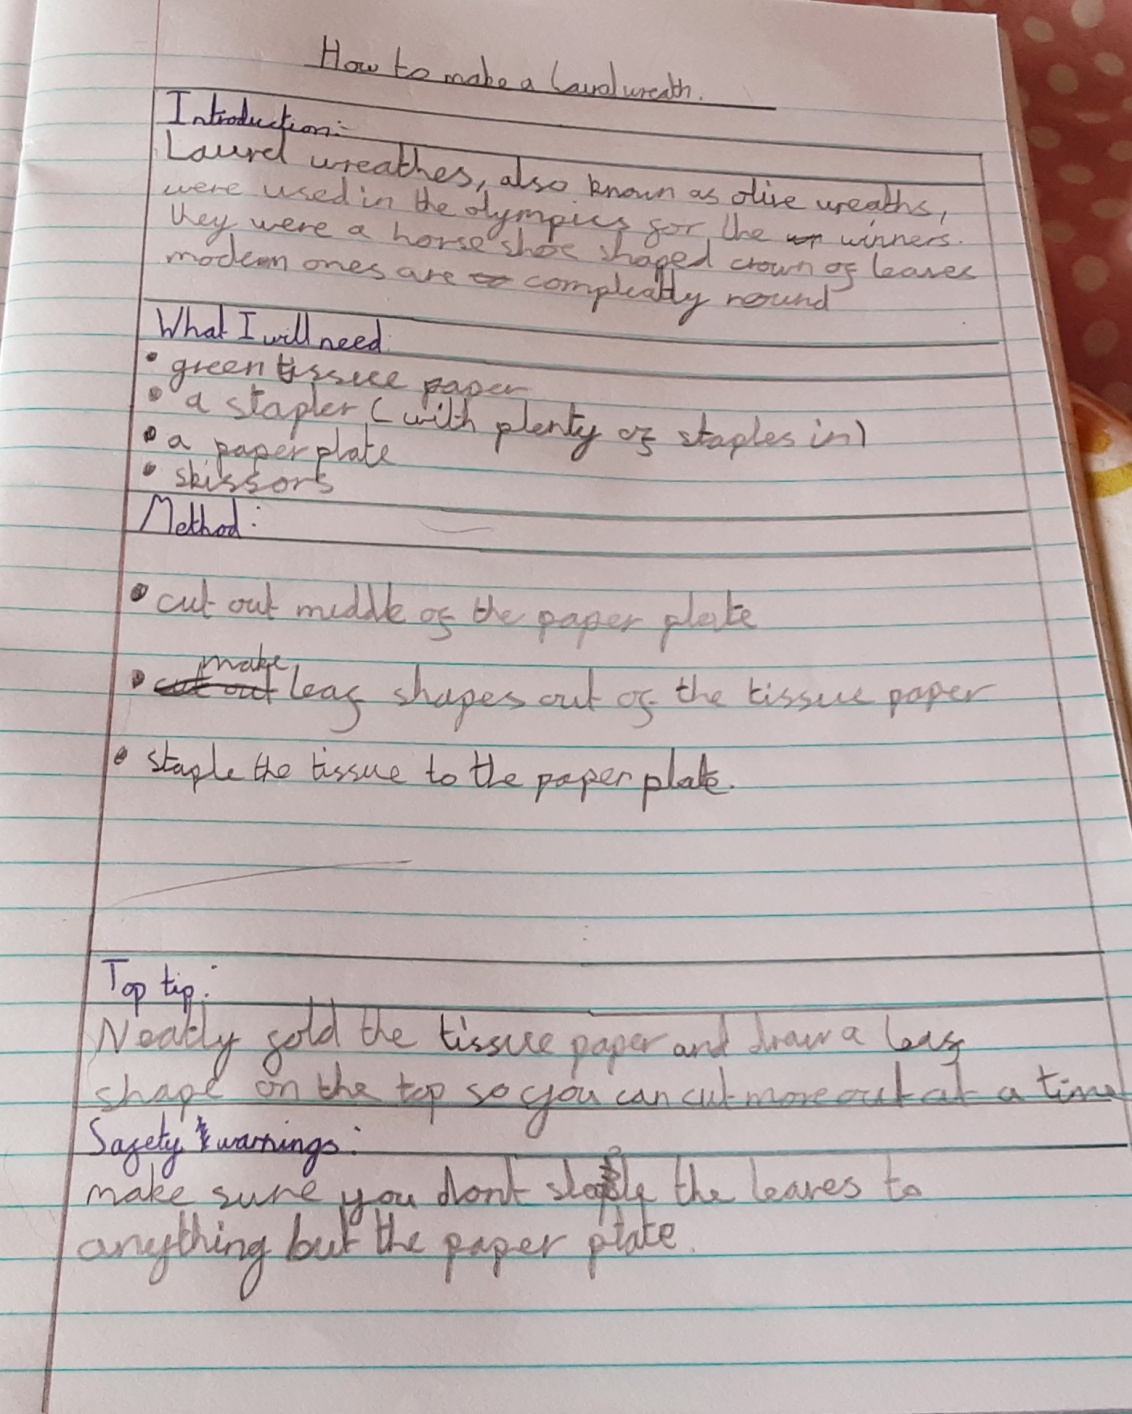 How to make a Laurel wreath.
Introduction:-
Laurel wreathes, also known as olive wreaths,
were used in the olympics for the winners.
they were a horse shoe shaped crown of leaves
modern ones are compleatly round
What I will need:
• green tissue paper
• a stapler (with plenty of staples in)
• a paper plate
• skissors
Method:
• cut out middle of the paper plate
• make leaf shapes out of the tissue paper
• staple the tissue to the paper plate.
Top tip:
Neatly fold the tissue paper and draw a leaf
shape on the top so you can cut more out at a time
Safety & warnings:
make sure you dont staple the leaves to
anything but the paper plate.